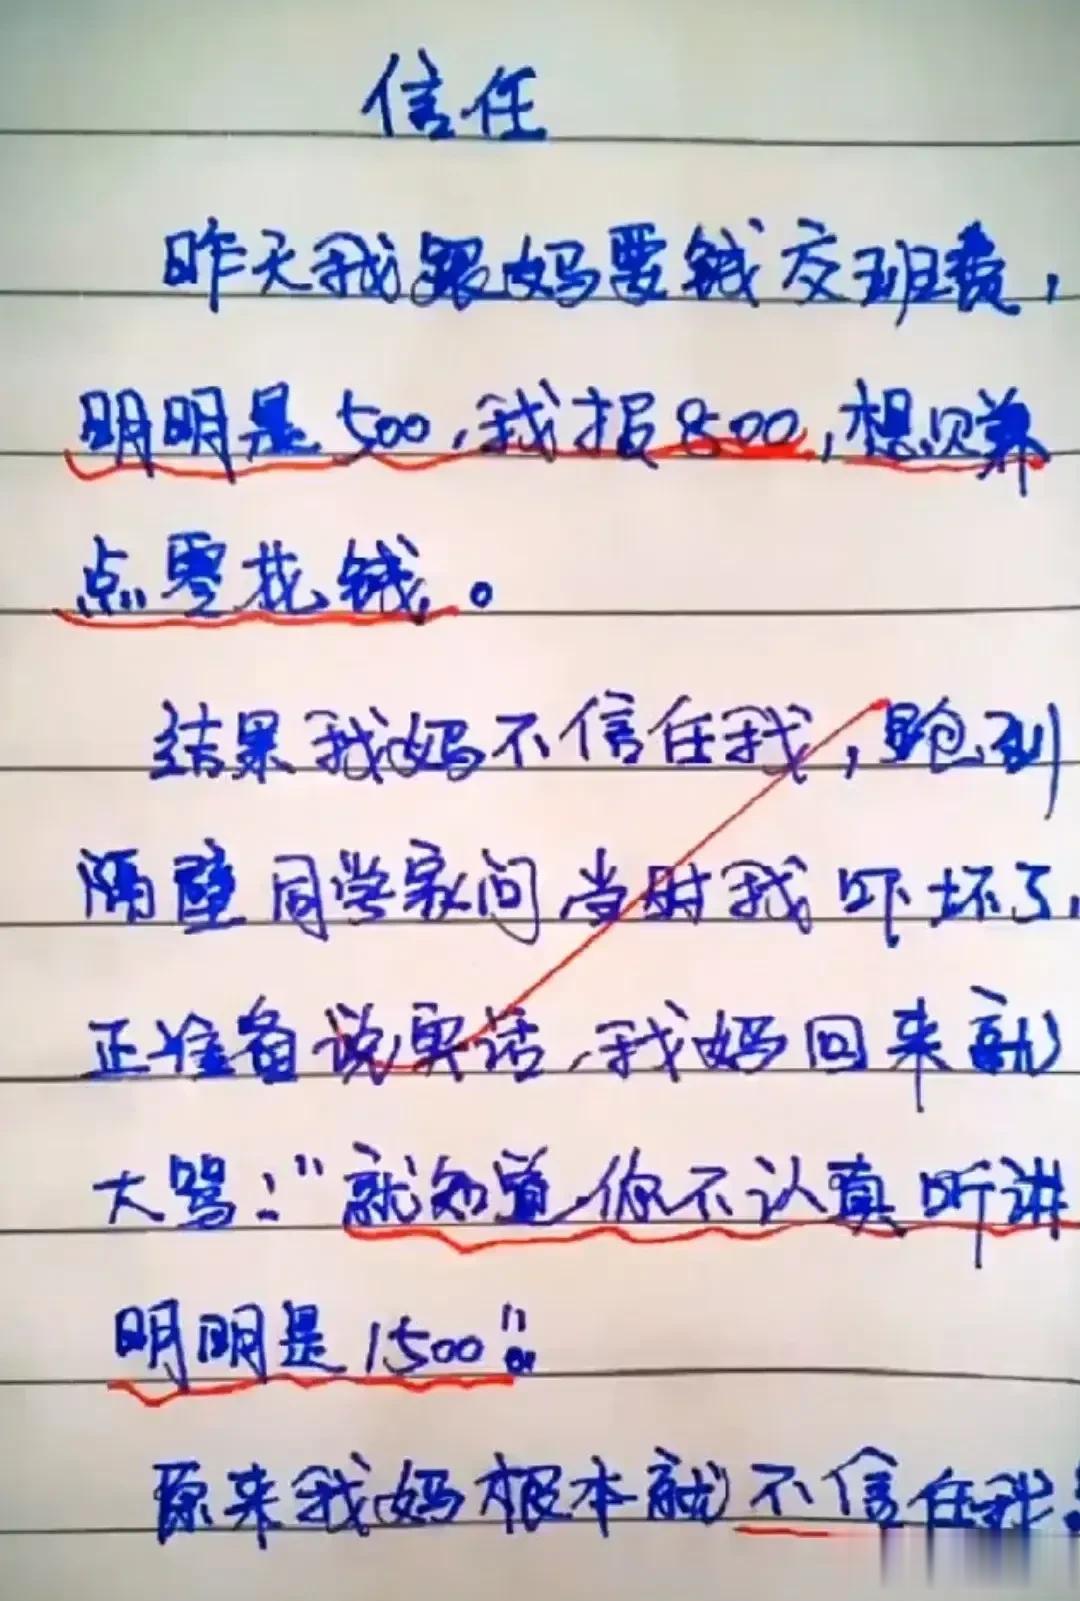 信任
昨天我跟妈要钱交班费,
明明是500,我报800,想赚
点零花钱。
结果我妈不信任我,跑到
隔壁同学家问当时我吓坏了,
正准备说实话,我妈回来就
大骂:"就知道你不认真听讲
明明是1500"。
原来我妈根本就不信任我